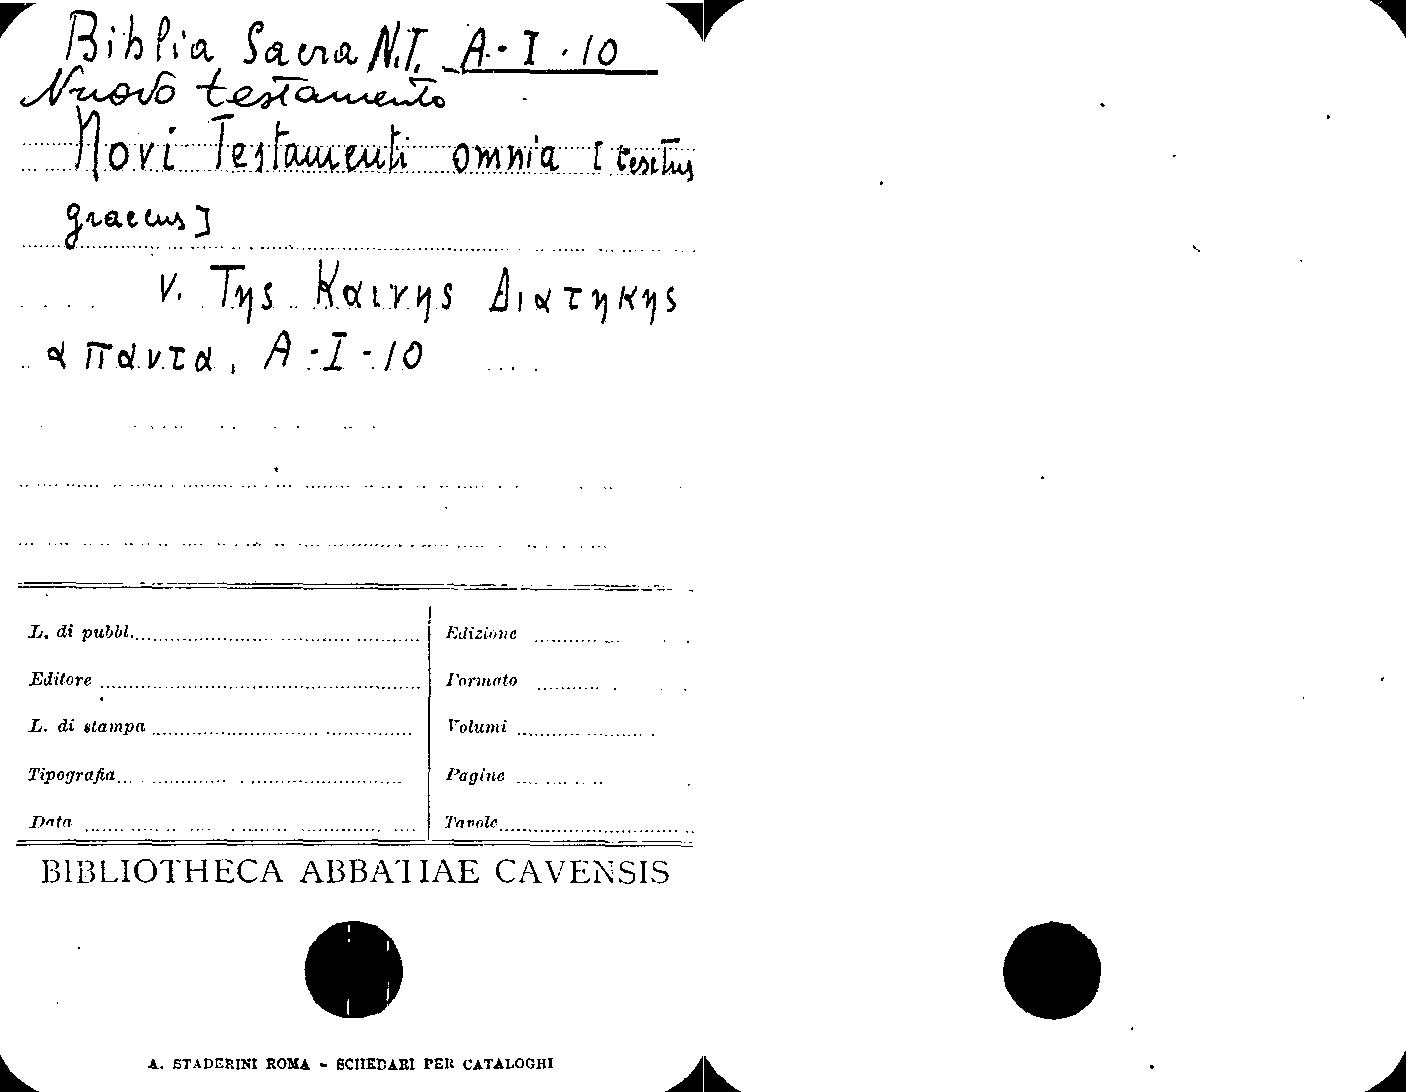 Biblia Sacra N.T. A-I-10
Nuovo testamento
Novi Testamenti omnia [textus
graecus]
v. Της Καινης Διατηκης
απαντα, A-I-10
L. di pubbl.
Edizione
Editore
Formato
L. di stampa
Volumi
Tipografia
Pagine
Data
Tavole
BIBLIOTHECA ABBATIAE CAVENSIS
A. STADERINI ROMA - SCHEDARI PER CATALOGHI